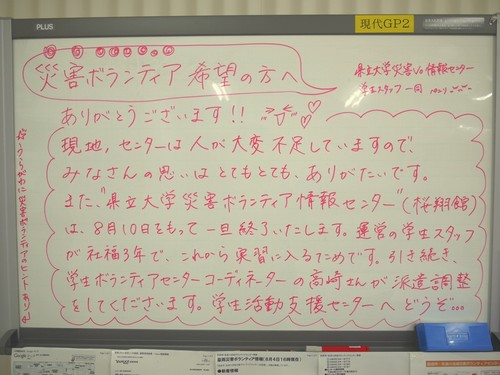 PLUS
現代GP2
災害ボランティア希望の方へ
県立大学災害Vo情報センター
学生スタッフ一同
ありがとうございます!!
現地、センターは人が大変不足していますので、
みなさんの思いはとてもとても、ありがたいです。
また、"県立大学災害ボランティア情報センター"(桜翔館)
は、8月10日をもって一旦終了いたします。運営の学生スタッフ
が社福3年で、これから実習に入るためです。引き続き、
学生ボランティアセンターコーディネーターの高崎さんが派遣調整
をしてくださいます。学生活動支援センターへどうぞ...
うらがわに災害ボランティアのヒントあり
Google
Yahoo!